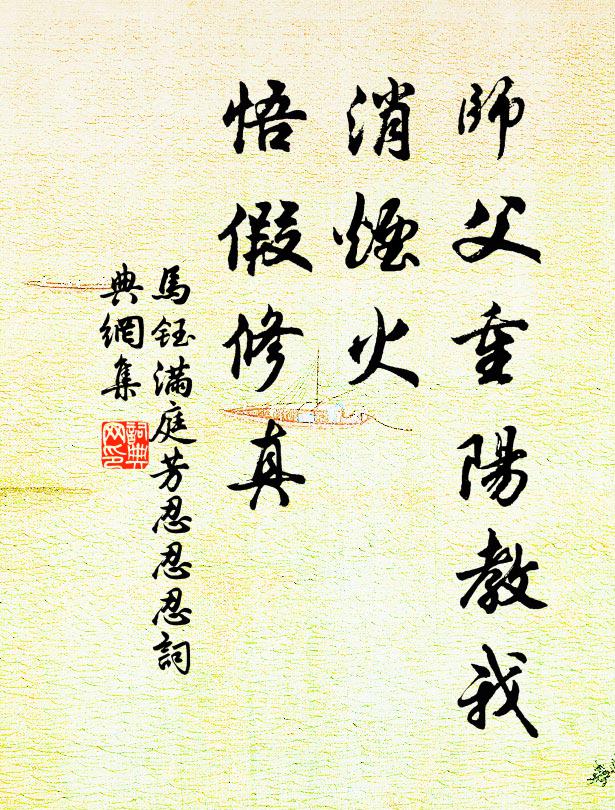 師父重陽教我
消煙火
悟假修真
馬鈺滿庭芳忍忍忍詞
典網集
詞典
网印